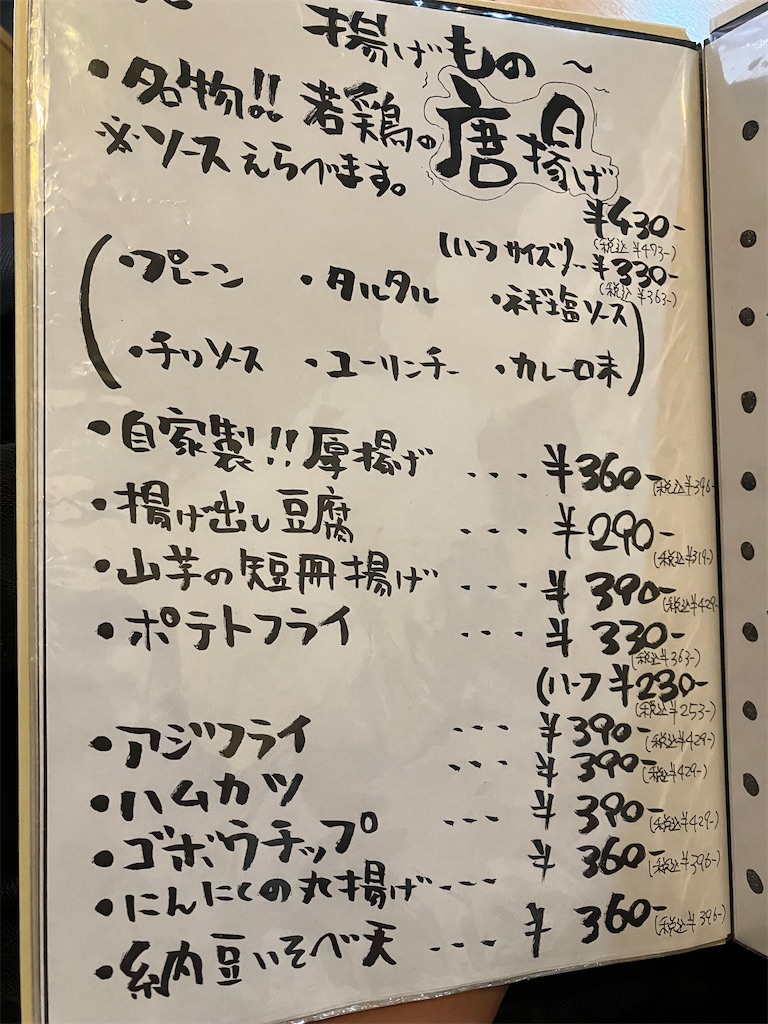 揚げもの〜
・名物!! 若鶏の唐揚げ
※ソースえらべます。
¥430-
(税込¥473-)
(ハーフサイズ)… ¥330-
(税込¥363-)
(・プレーン ・タルタル ・ネギ塩ソース
・チリソース ・ユーリンチー ・カレー味)
・自家製!! 厚揚げ --- ¥360- (税込¥396-
・揚げ出し豆腐 --- ¥290-
(税込¥319-)
・山芋の短冊揚げ --- ¥390- (税込¥429-
・ポテトフライ --- ¥330-
(税込¥363-)
(ハーフ ¥230-
(税込¥253-)
・アジフライ --- ¥390- (税込¥429-)
・ハムカツ --- ¥390- (税込¥429-)
・ゴボウチップ --- ¥390- (税込¥429-)
・にんにくの丸揚げ --- ¥360- (税込¥396-)
・納豆いそべ天 --- ¥360- (税込¥396-)